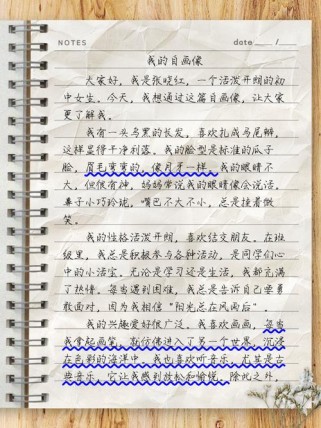 NOTES date ___ / ___
我的自画像
大家好，我是张晓红，一个活泼开朗的初
中女生。今天，我想通过这篇自画像，让大家
更了解我。
我有一头乌黑的长发，喜欢扎成马尾辫，
这样显得干净利落。我的脸型是标准的瓜子
脸，眉毛弯弯的，像月牙一样。我的眼睛不
大，但很有神，妈妈常说我的眼睛像会说话。
鼻子小巧玲珑，嘴巴不大不小，总是挂着微
笑。
我的性格活泼开朗，喜欢结交朋友。在班
级里，我总是积极参与各种活动，是同学们心
中的小活宝。无论是学习还是生活，我都充满
了热情。每当遇到困难，我总是告诉自己要勇
敢面对，因为我相信“阳光总在风雨后”。
我的兴趣爱好很广泛。我喜欢画画，每当
我拿起画笔，就仿佛进入了另一个世界，沉浸
在色彩的海洋中。我也喜欢听音乐，尤其是古
典音乐，它让我感到放松和愉悦。除此之外，